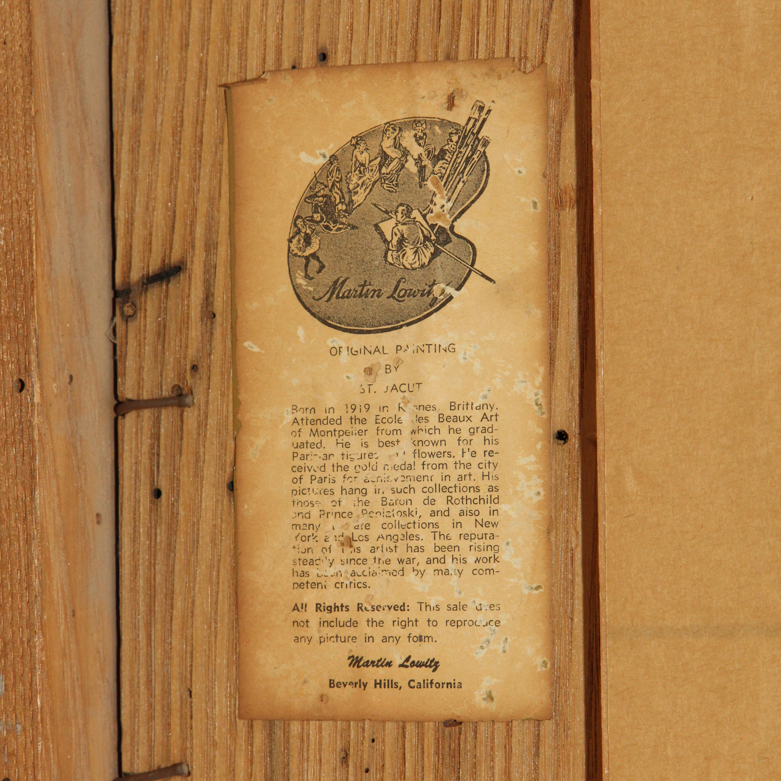 Martin Lowitz
ORIGINAL PAINTING
BY
ST. JACUT
Born in 1919 in Rennes, Brittany.
Attended the Ecole des Beaux Art
of Montpelier from which he grad-
uated. He is best known for his
Parisian figures and flowers. He re-
ceived the gold medal from the city
of Paris for achievement in art. His
pictures hang in such collections as
those of the Baron de Rothchild
and Prince Poniatoski, and also in
many private collections in New
York and Los Angeles. The reputa-
tion of this artist has been rising
steadily since the war, and his work
has been acclaimed by many com-
petent critics.
All Rights Reserved: This sale does
not include the right to reproduce
any picture in any form.
Martin Lowitz
Beverly Hills, California